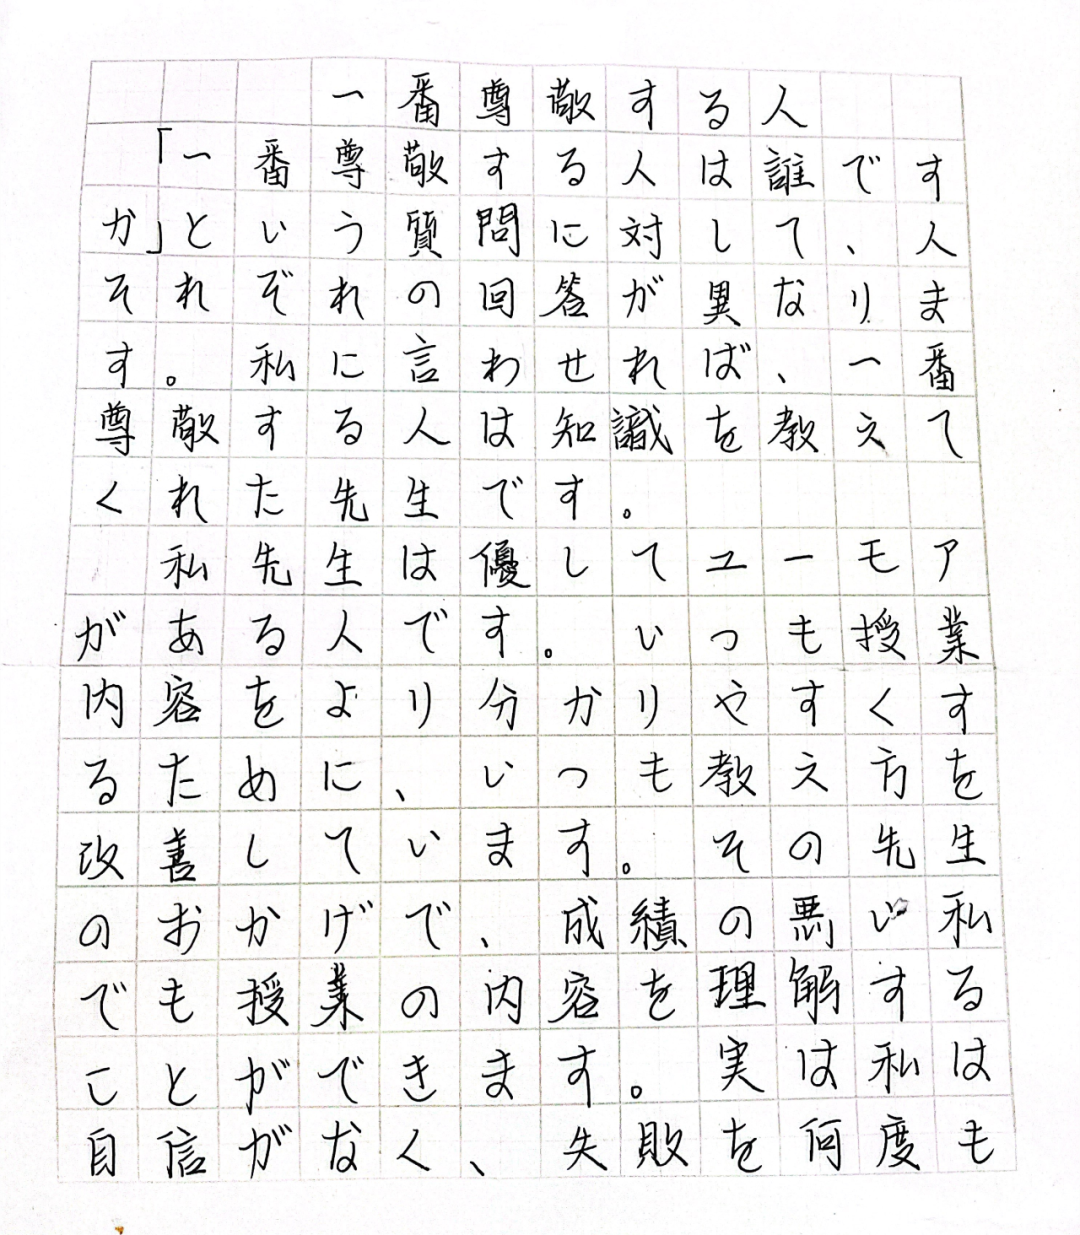 一番尊敬する人
「一番尊敬する人は誰です
か」という質問に対して、人
それぞれの回答が異なりま
す。私に言わせれば、一番
尊敬する人は知識を教えて
くれた先生です。
私先生は優してユーモア
がある人です。いつも授業
内容をより分かりやすくす
るために、いつも教え方を
改善しています。その先生
のおかげで、成績の悪い私
でも授業の内容を理解する
ことができます。実は私は
自信がなく、失敗を何度も